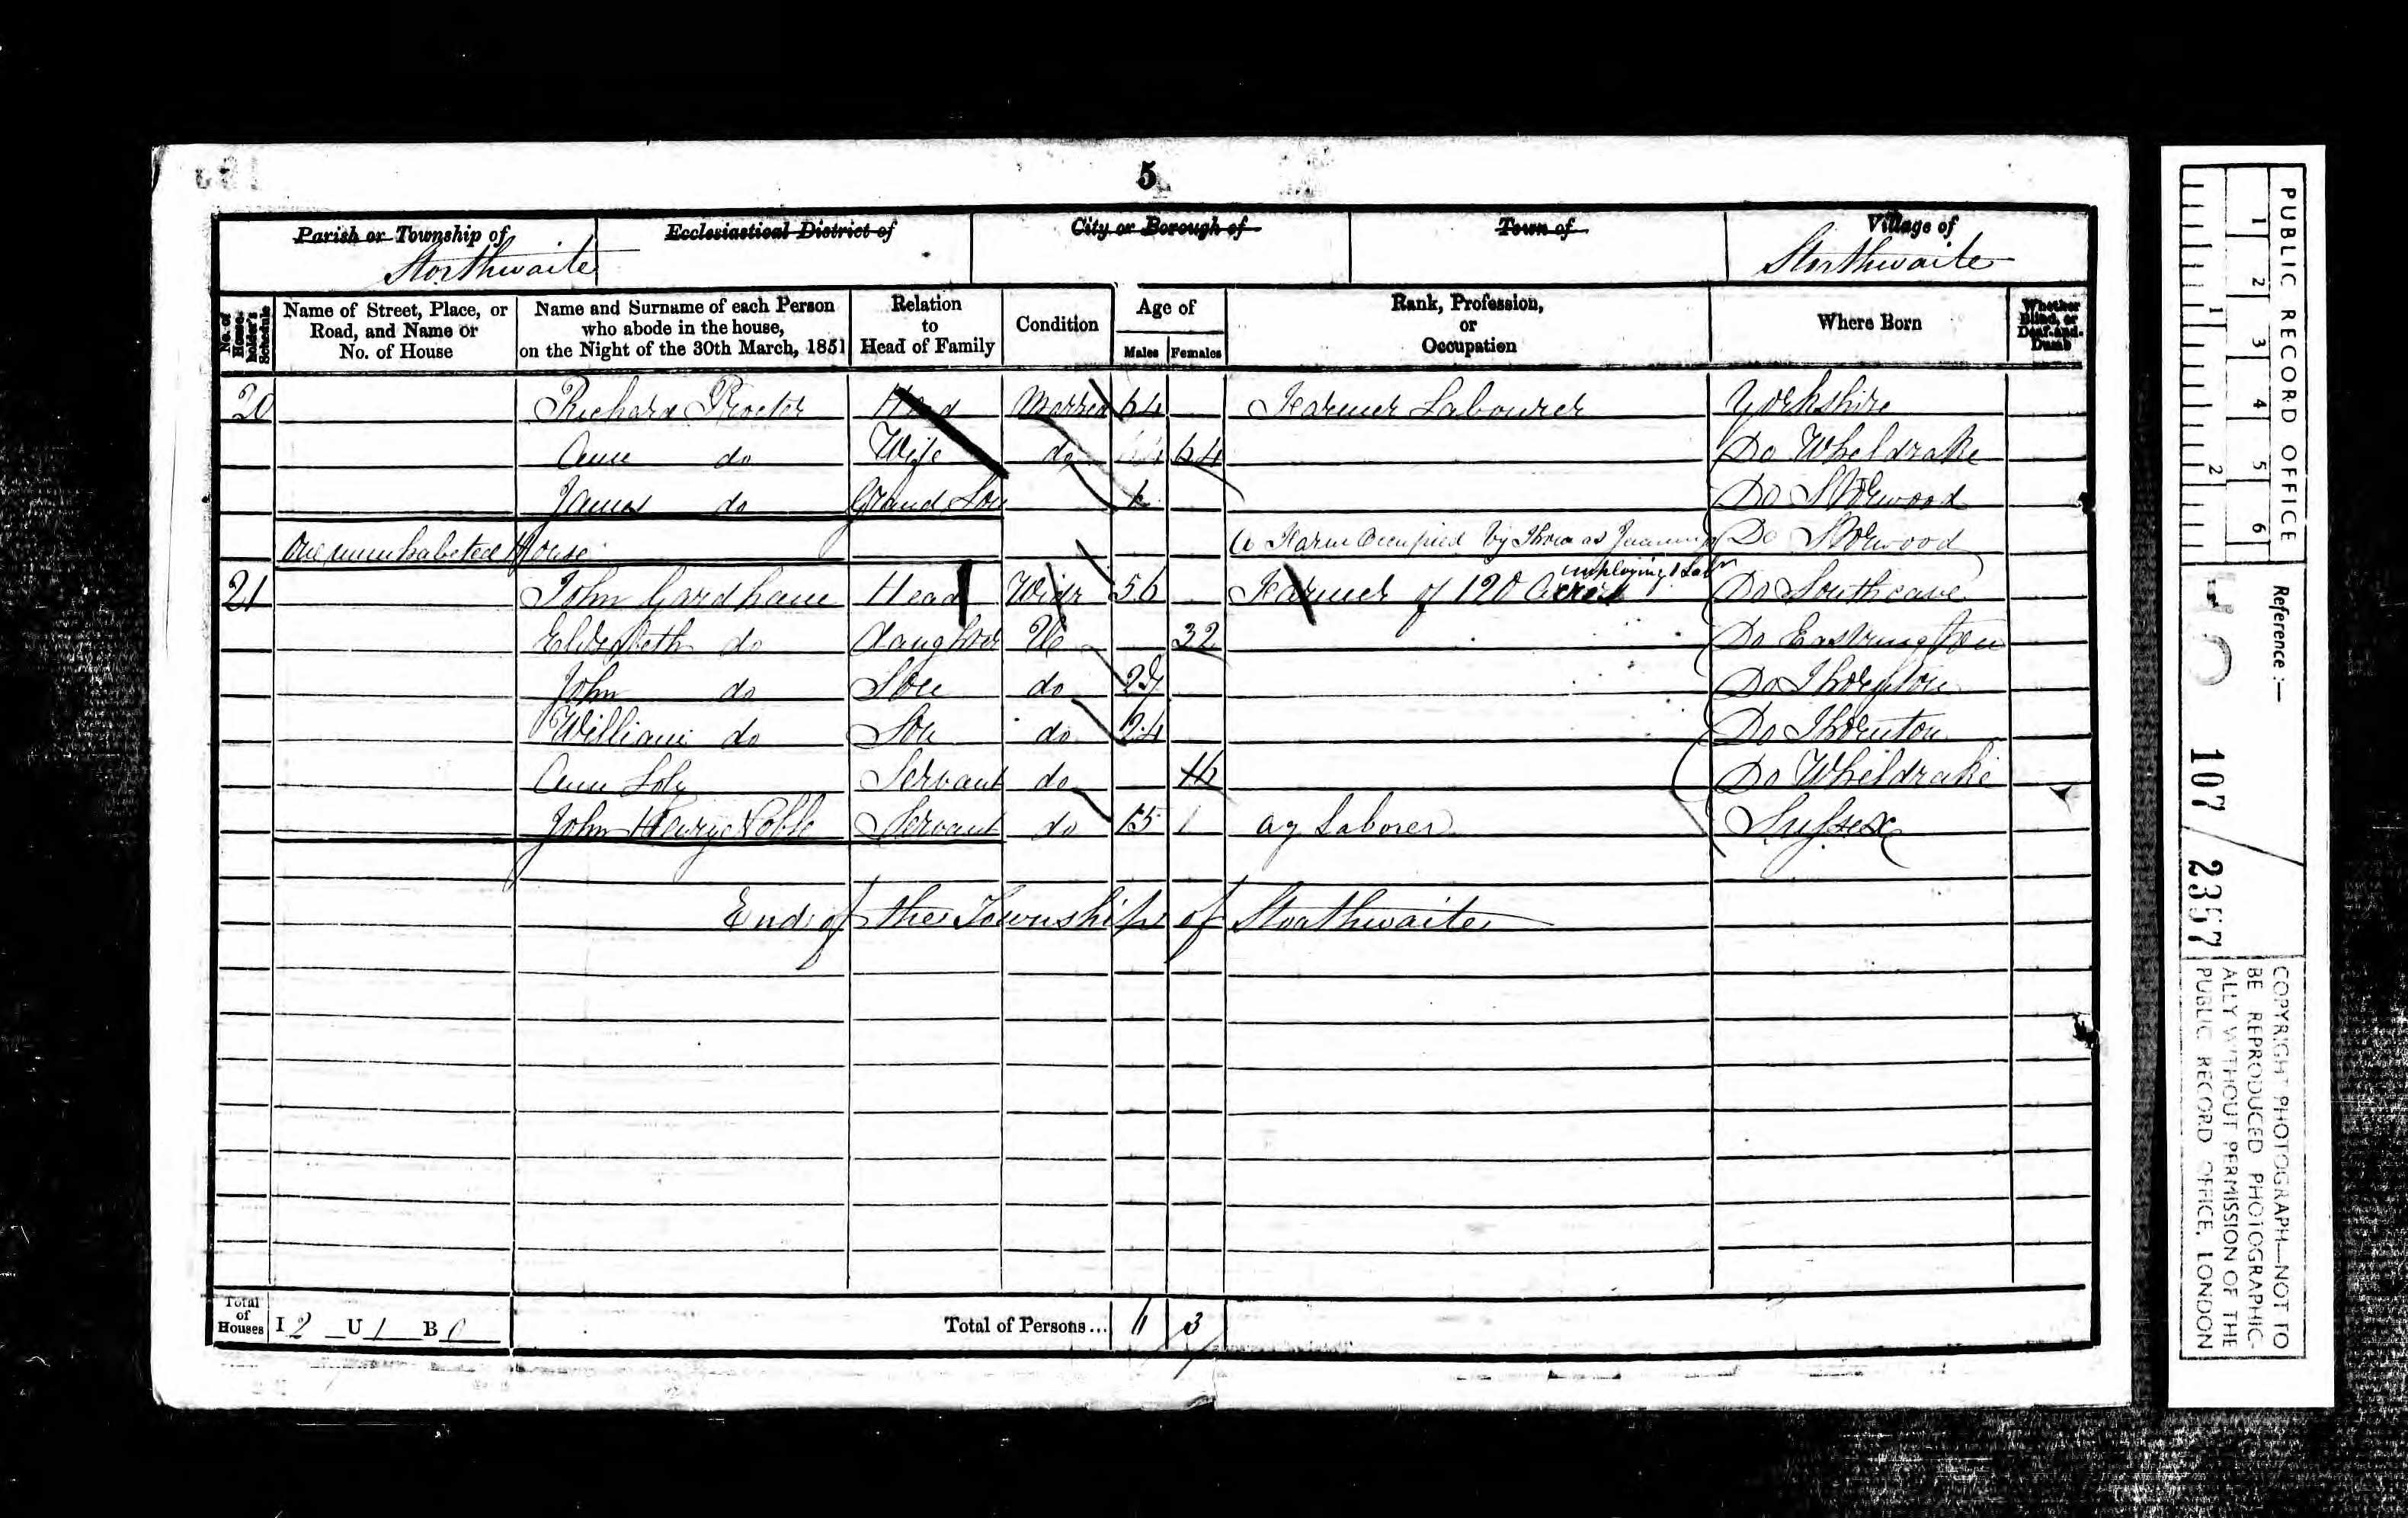 5
Parish or Township of
Storthwaite
Ecclesiastical District of
City or Borough of
Town of
Village of
Storthwaite
No. of House-holder's Schedule
Name of Street, Place, or Road, and Name or No. of House
Name and Surname of each Person who abode in the house, on the Night of the 30th March, 1851
Relation to Head of Family
Condition
Age of
Males Females
Rank, Profession, or Occupation
Where Born
Whether Blind, or Deaf-and-Dumb
20 Richard Procter Head Married 64 Farmer Labourer Yorkshire
Ann do Wife do 64 Do Wheldrake
James do Grand Son Do Storwood
One uninhabeted House A Farm Occupied by Thomas Do Storwood
21 John Gardham Head Widr 56 Farmer of 120 Acres employing 1 Labr Do Southcave
Elizabeth do daughter U 32 Do Eastrington
John do Son do 29 Do Thornton
William do Son do 24 Do Thornton
Ann Servant do 16 Do Wheldrake
John Henry Noble Servant do 15 ag Laborer Sussex
End of the Township of Storthwaite
Total of Houses I 2 U 1 B 0
Total of Persons... 6 3
PUBLIC RECORD OFFICE
1 2 3 4 5 6
1 2
Reference :—
HO 107 / 2357
COPYRIGHT PHOTOGRAPH—NOT TO
BE REPRODUCED PHOTOGRAPHIC-
ALLY WITHOUT PERMISSION OF THE
PUBLIC RECORD OFFICE, LONDON